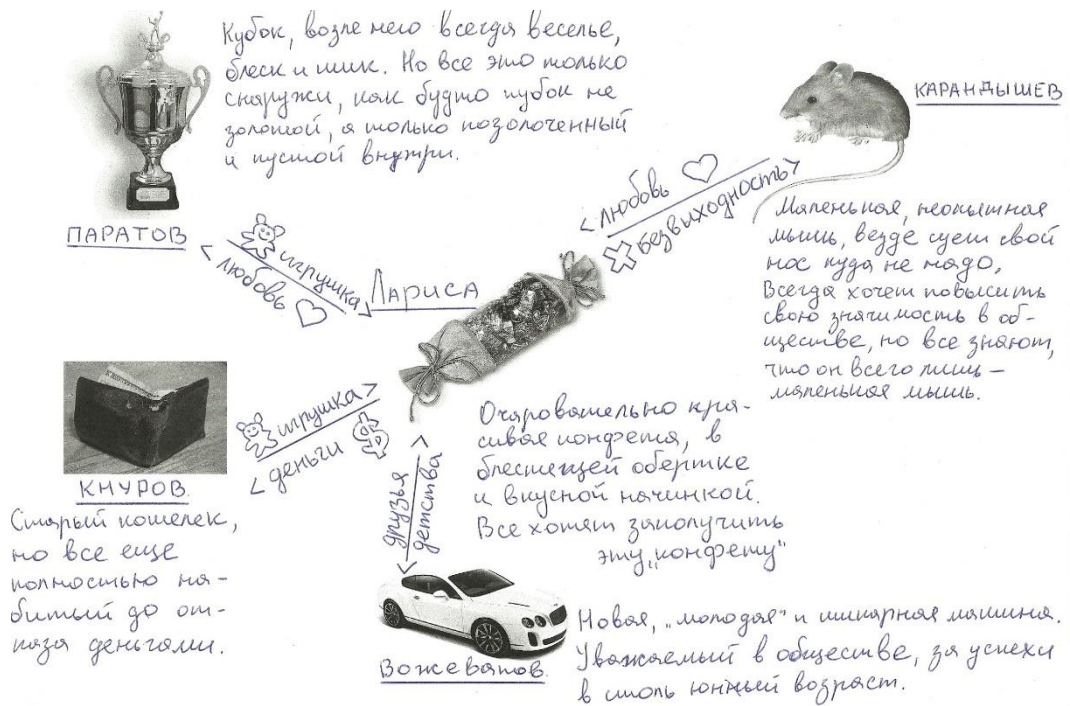 Кубок, возле него всегда веселье,
блеск и шик. Но все это только
снаружи, как будто кубок не
золотой, а только позолоченный
и пустой внутри.
ПАРАТОВ
КАРАНДЫШЕВ
<любовь
безвыходность>
Маленькая, неопытная
мышь, везде сует свой
нос куда не надо,
Всегда хочет повысить
свою значимость в об-
ществе, но все знают,
что он всего лишь -
маленькая мышь.
игрушка
<любовь
Лариса
игрушка>
<деньги
КНУРОВ.
Старый кошелек,
но все еще
полностью на-
битый до от-
каза деньгами.
друзья
детства
Очаровательно кра-
сивая конфета, в
блестящей обертке
и вкусной начинкой.
Все хотят заполучить
эту „конфету"
Вожеватов.
Новая, „молодая" и шикарная машина.
Уважаемый в обществе, за успехи
в столь юнный возраст.